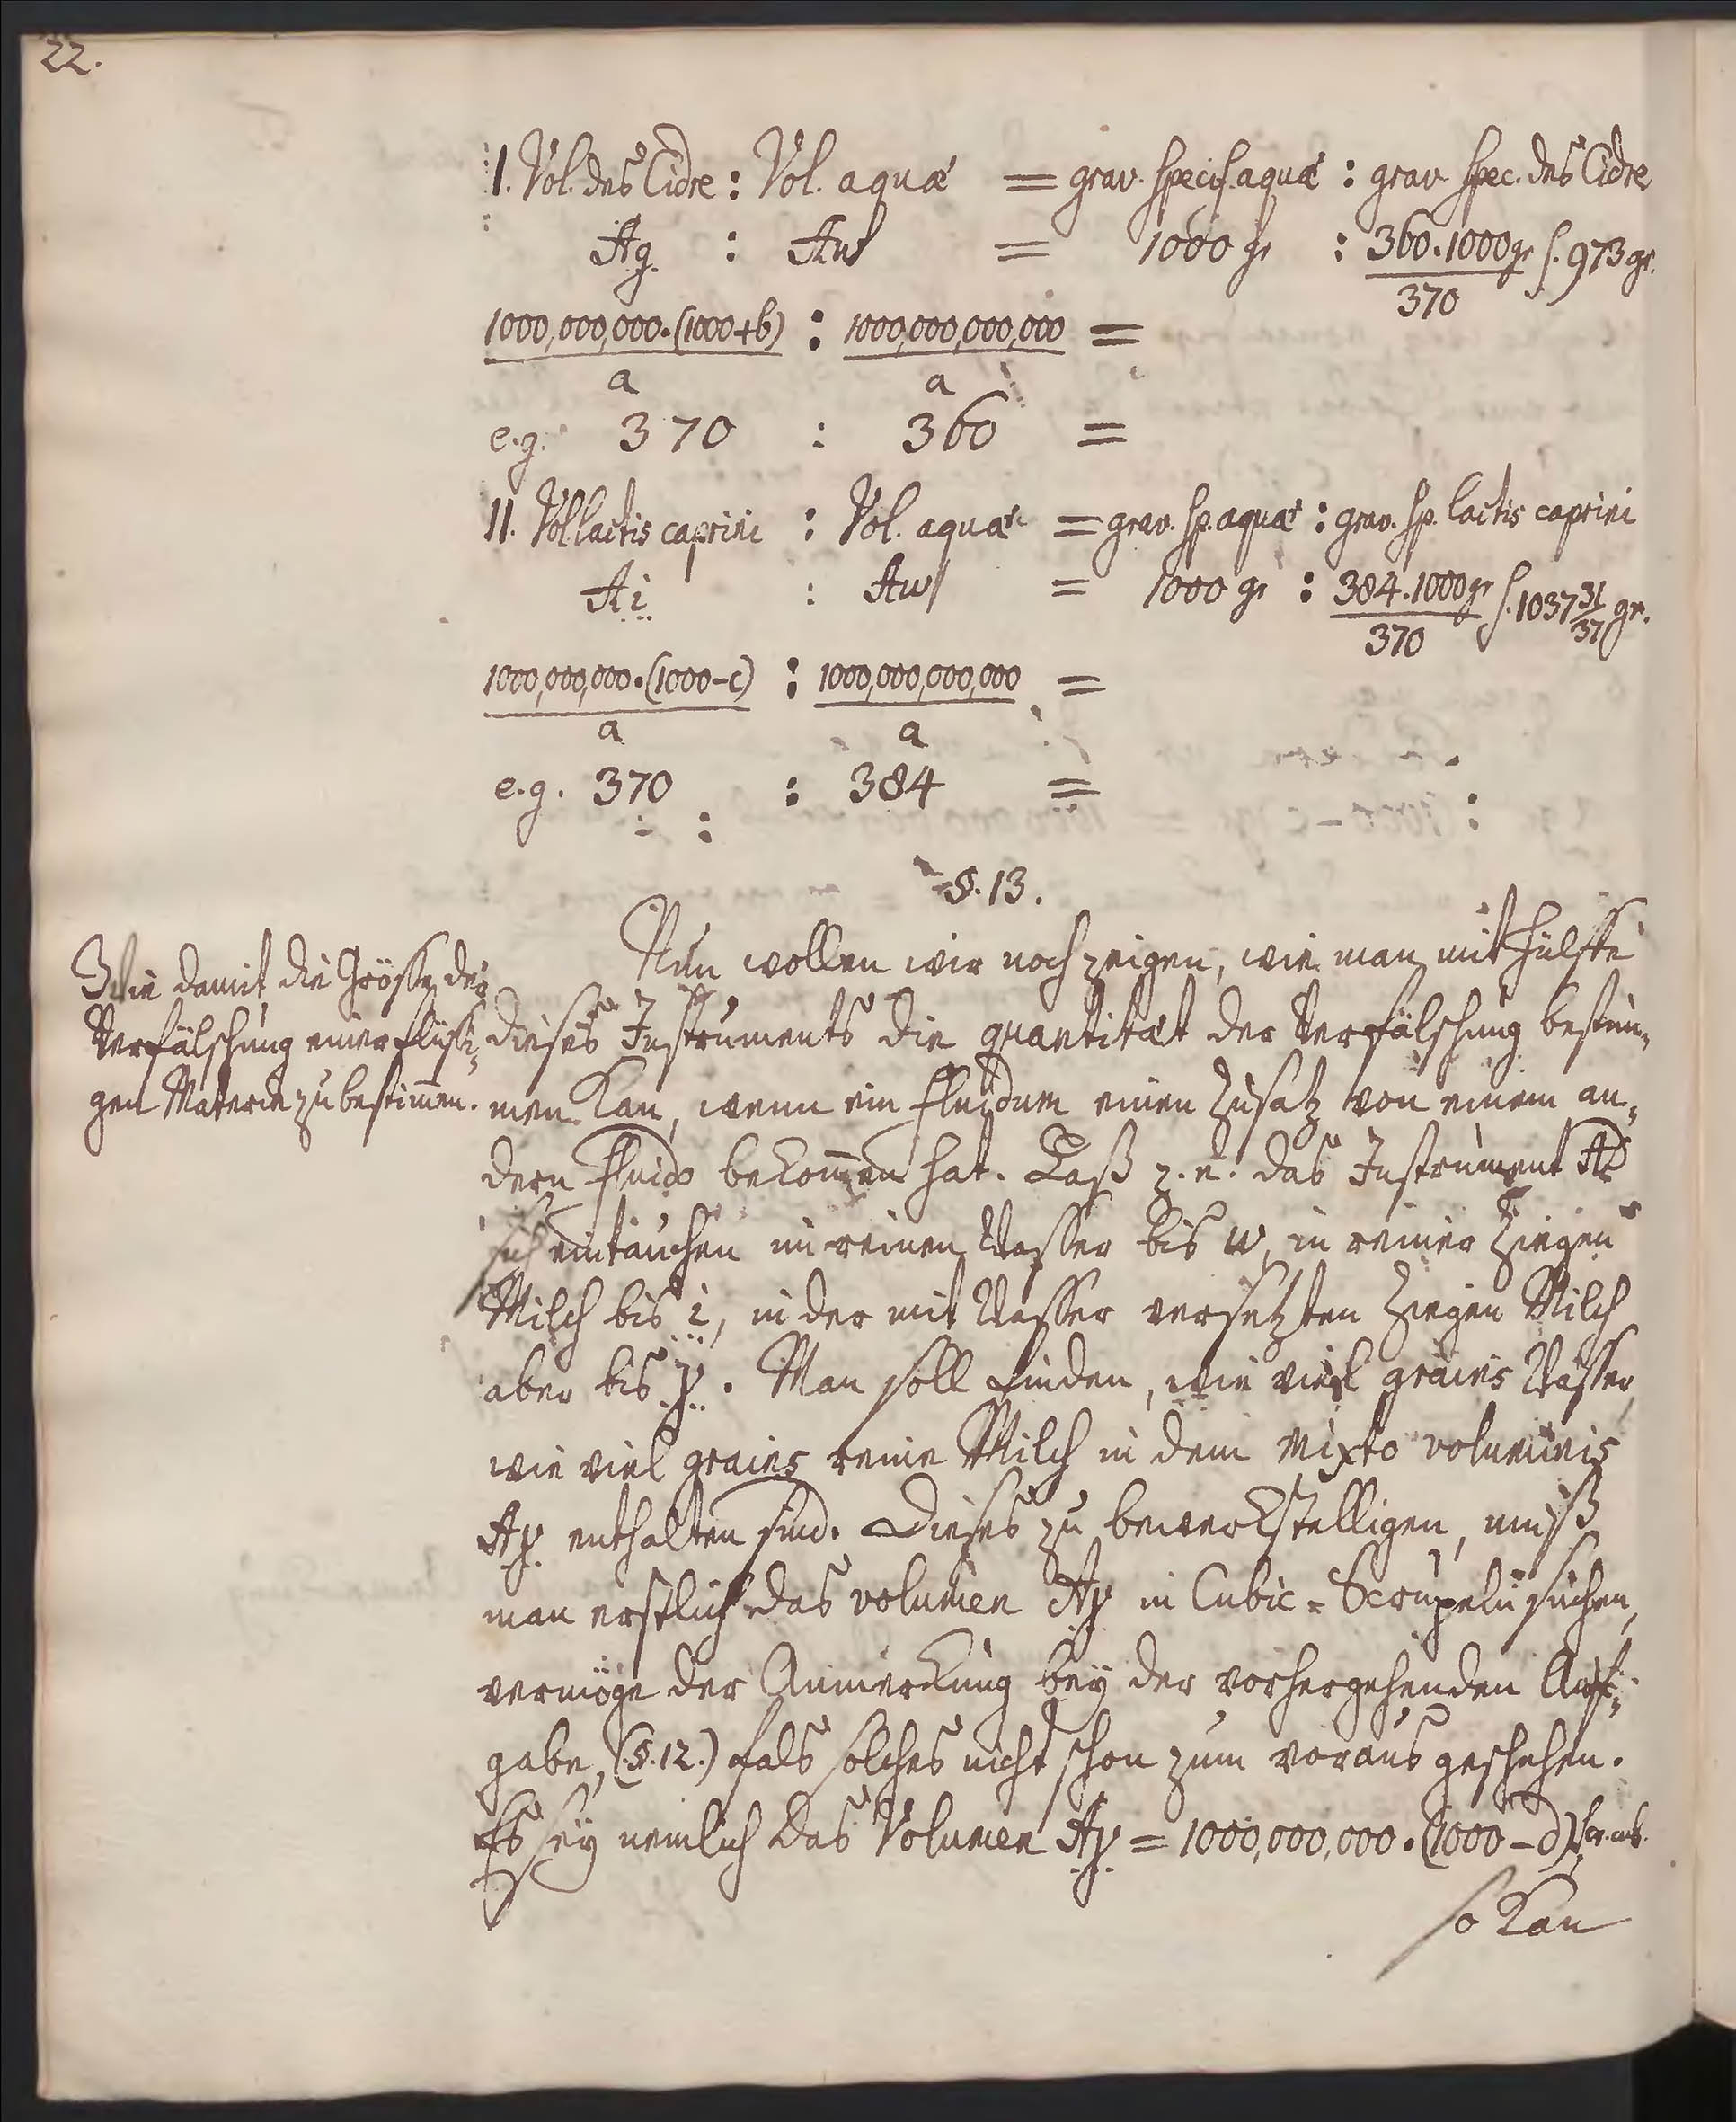 22.
I. Vol. des Cidre : Vol. aquæ = grav. specif. aquæ : grav. spec. des Cidre
Ag. : Aw = 1000 gr : 360.1000 gr / 370 s. 973 gr.
1000,000,000.(1000+b) / a : 1000,000,000,000 / a =
e.g. 370 : 360 =
II. Vol lactis caprini : Vol. aquæ = grav. sp. aquæ : grav. sp. lactis caprini
Ai : Aw = 1000 gr : 384.1000 gr / 370 s. 1037 31/37 gr.
1000,000,000.(1000-c) / a : 1000,000,000,000 / a =
e.g. 370 : 384 =
§. 13.
Wie damit die Grösse der
Verfälschung einer flüssi-
gen Materie zu bestim̄en.
Nun wollen wir noch zeigen, wie man mit Hülffe
dieses Instruments die quantitæt der Verfälschung bestim-
men kan, wenn ein fluidum einen Zusatz von einem an-
dern fluido bekom̄en hat. Laß z. e. das Instrument AD
sich eintauchen in reinen Wasser bis w, in reiner Ziegen
Milch bis i, in der mit Wasser versetzten Ziegen Milch
aber bis y. Man soll finden, wie viel grains Wasser,
wie viel grains reine Milch in dem mixto voluminis
Ay enthalten sind. Dieses zu bewerkstelligen, muß
man erstlich das volumen Ay in Cubic-Scrupeln suchen,
vermöge der Anmerckung bey der vorhergehenden Auf-
gabe, (§. 12.) fals solches nicht schon zum voraus geschehen.
Es sey nemlich das Volumen Ay = 1000,000,000.(1000-d) scr. cub.
so kan